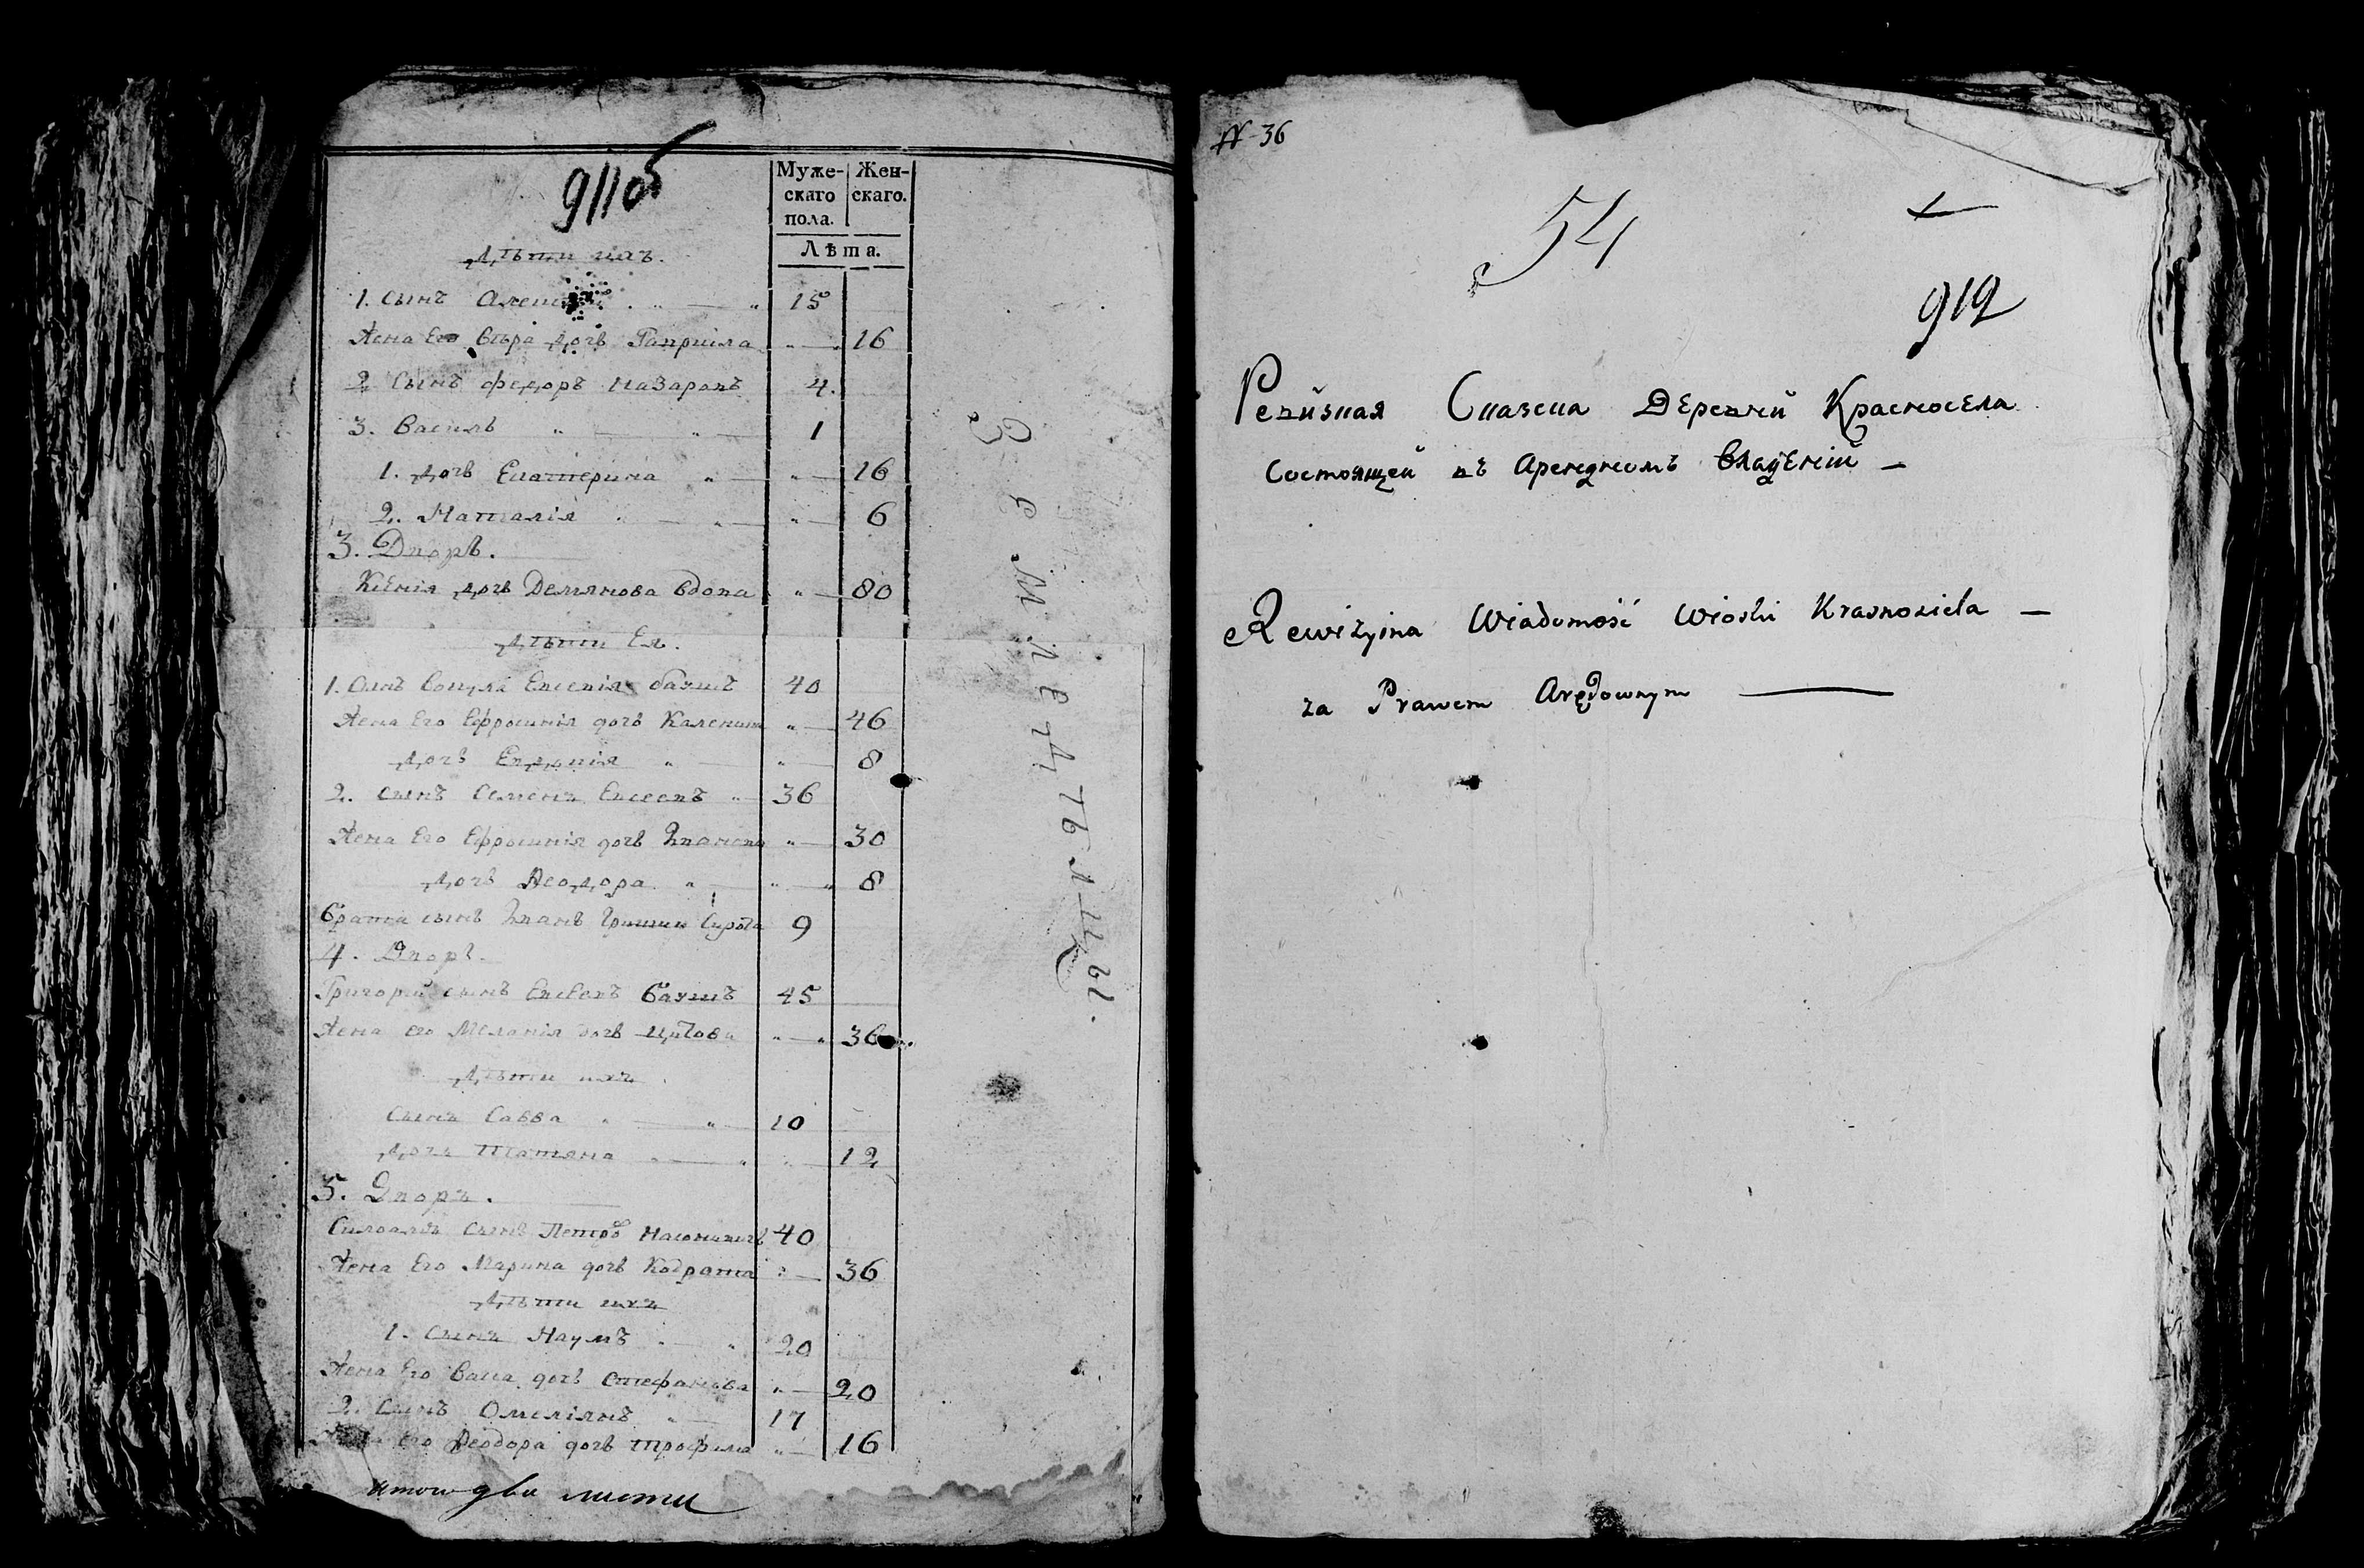 911об
Муже-
скаго
пола.
Жен-
скаго.
Лѣта.
Дѣти ихъ.
1. сынъ 15
Жена Его Вѣра дочь Гаприила 16
2 Сынъ Федоръ Назаропъ 4.
3. Василь 1
1. дочь Екатерина 16
2. Наталія 6
3. Дпоръ.
Ксенія дочь Демянова вдопа 80
Дѣти Ея.
1. 40
Жена Его Ефросинія дочь 46
дочь Епдокія 8
2. сынъ Семенъ Епсеепъ 36
Жена Его Ефросинія дочь Ипанопа 30
дочь Ѳеодора 8
брата сынъ Ипанъ Сирота 9
4. Дпоръ.
Григорій сынъ Епсеепъ 45
Жена его Меланія дочь 36
Дѣти ихъ.
Сынъ Савва 10
дочь Татяна 12
5. Дпоръ.
сынъ Петровъ 40
Жена Его Марина дочь Кодрата 36
Дѣти ихъ
1. Сынъ Наумъ 20
Жена Его Васа дочь Стефанова 20
2. Сынъ Омеліянъ 17
Жена Его Ѳеодора дочь Трофима 16
итого два листа
Земледѣльцы.
N 36
54
912
Репизкая Сказска Дерепни Красносела
Состоящей пъ Арендномъ владеніи –
Rewizyina Wiadomość Wioski Krasnosiela —
za Prawem Arędownym —